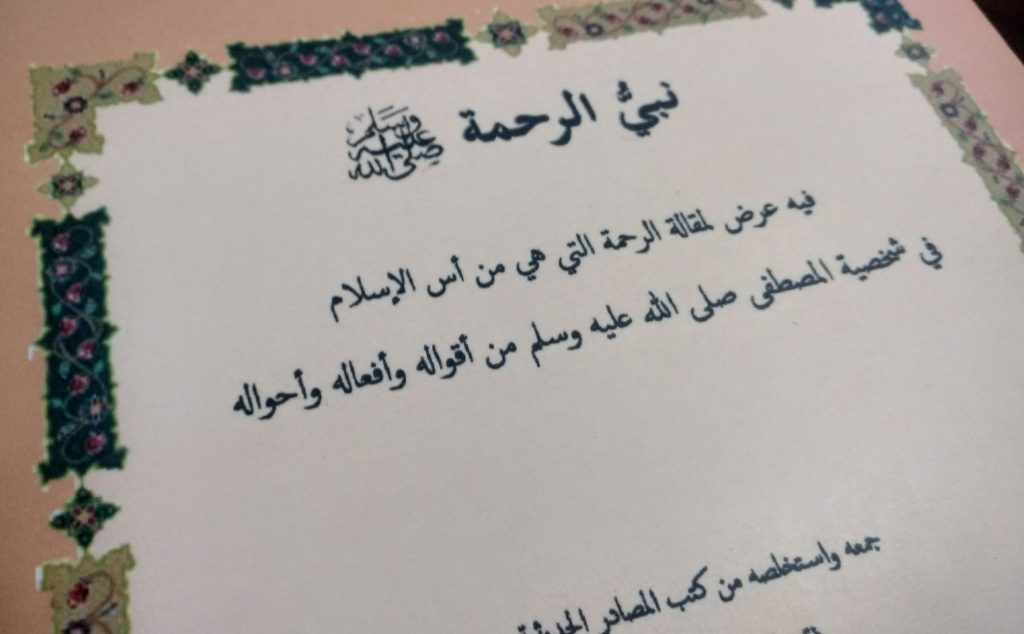 نبيُّ الرحمة ﷺ
فيه عرض لمقالة الرحمة التي هي من أس الإسلام
في شخصية المصطفى صلى الله عليه وسلم من أقواله وأفعاله وأحواله
جمعه واستخلصه من كتب المصادر الحديثية